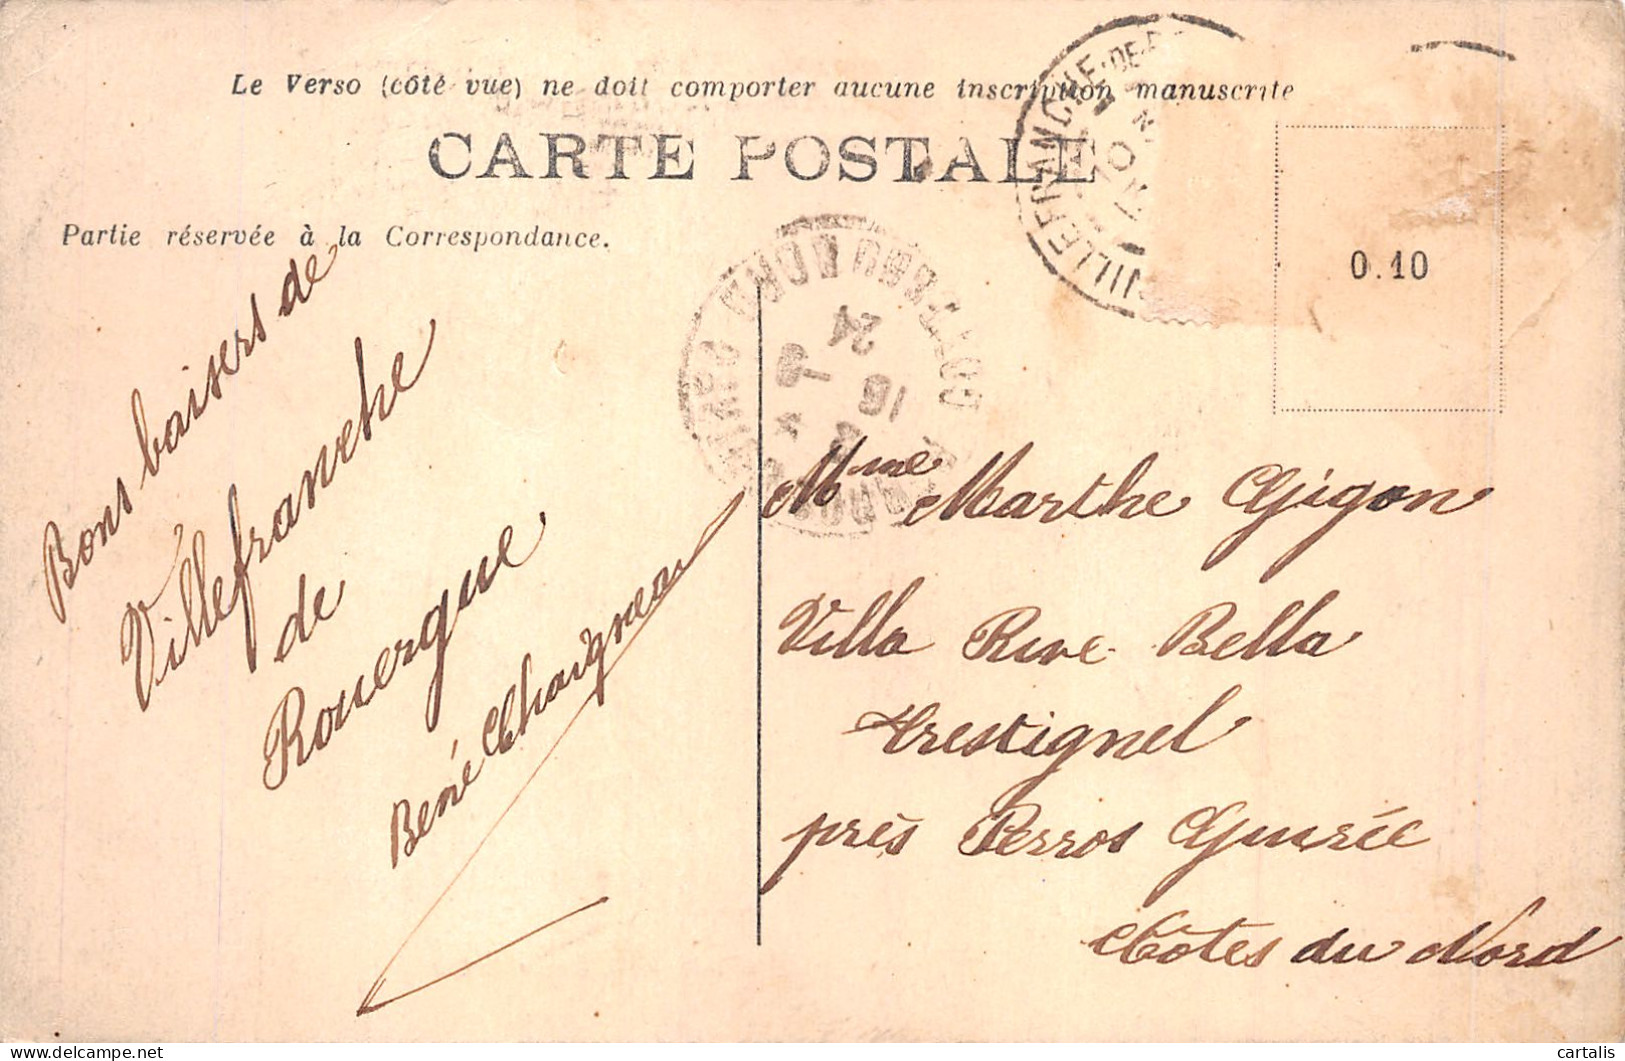 Le Verso (côté vue) ne doit comporter aucune inscription manuscrite
CARTE POSTALE
Partie réservée à la Correspondance.
VILLEFRANCHE-DE-
0.10
24
16
Bons baisers de
Villefranche
de
Rouergue
René Chaigneau
Mme Marthe Gigon
Villa Rive Bella
Trestignel
près Perros Guirée
Côtes du Nord
cartalis